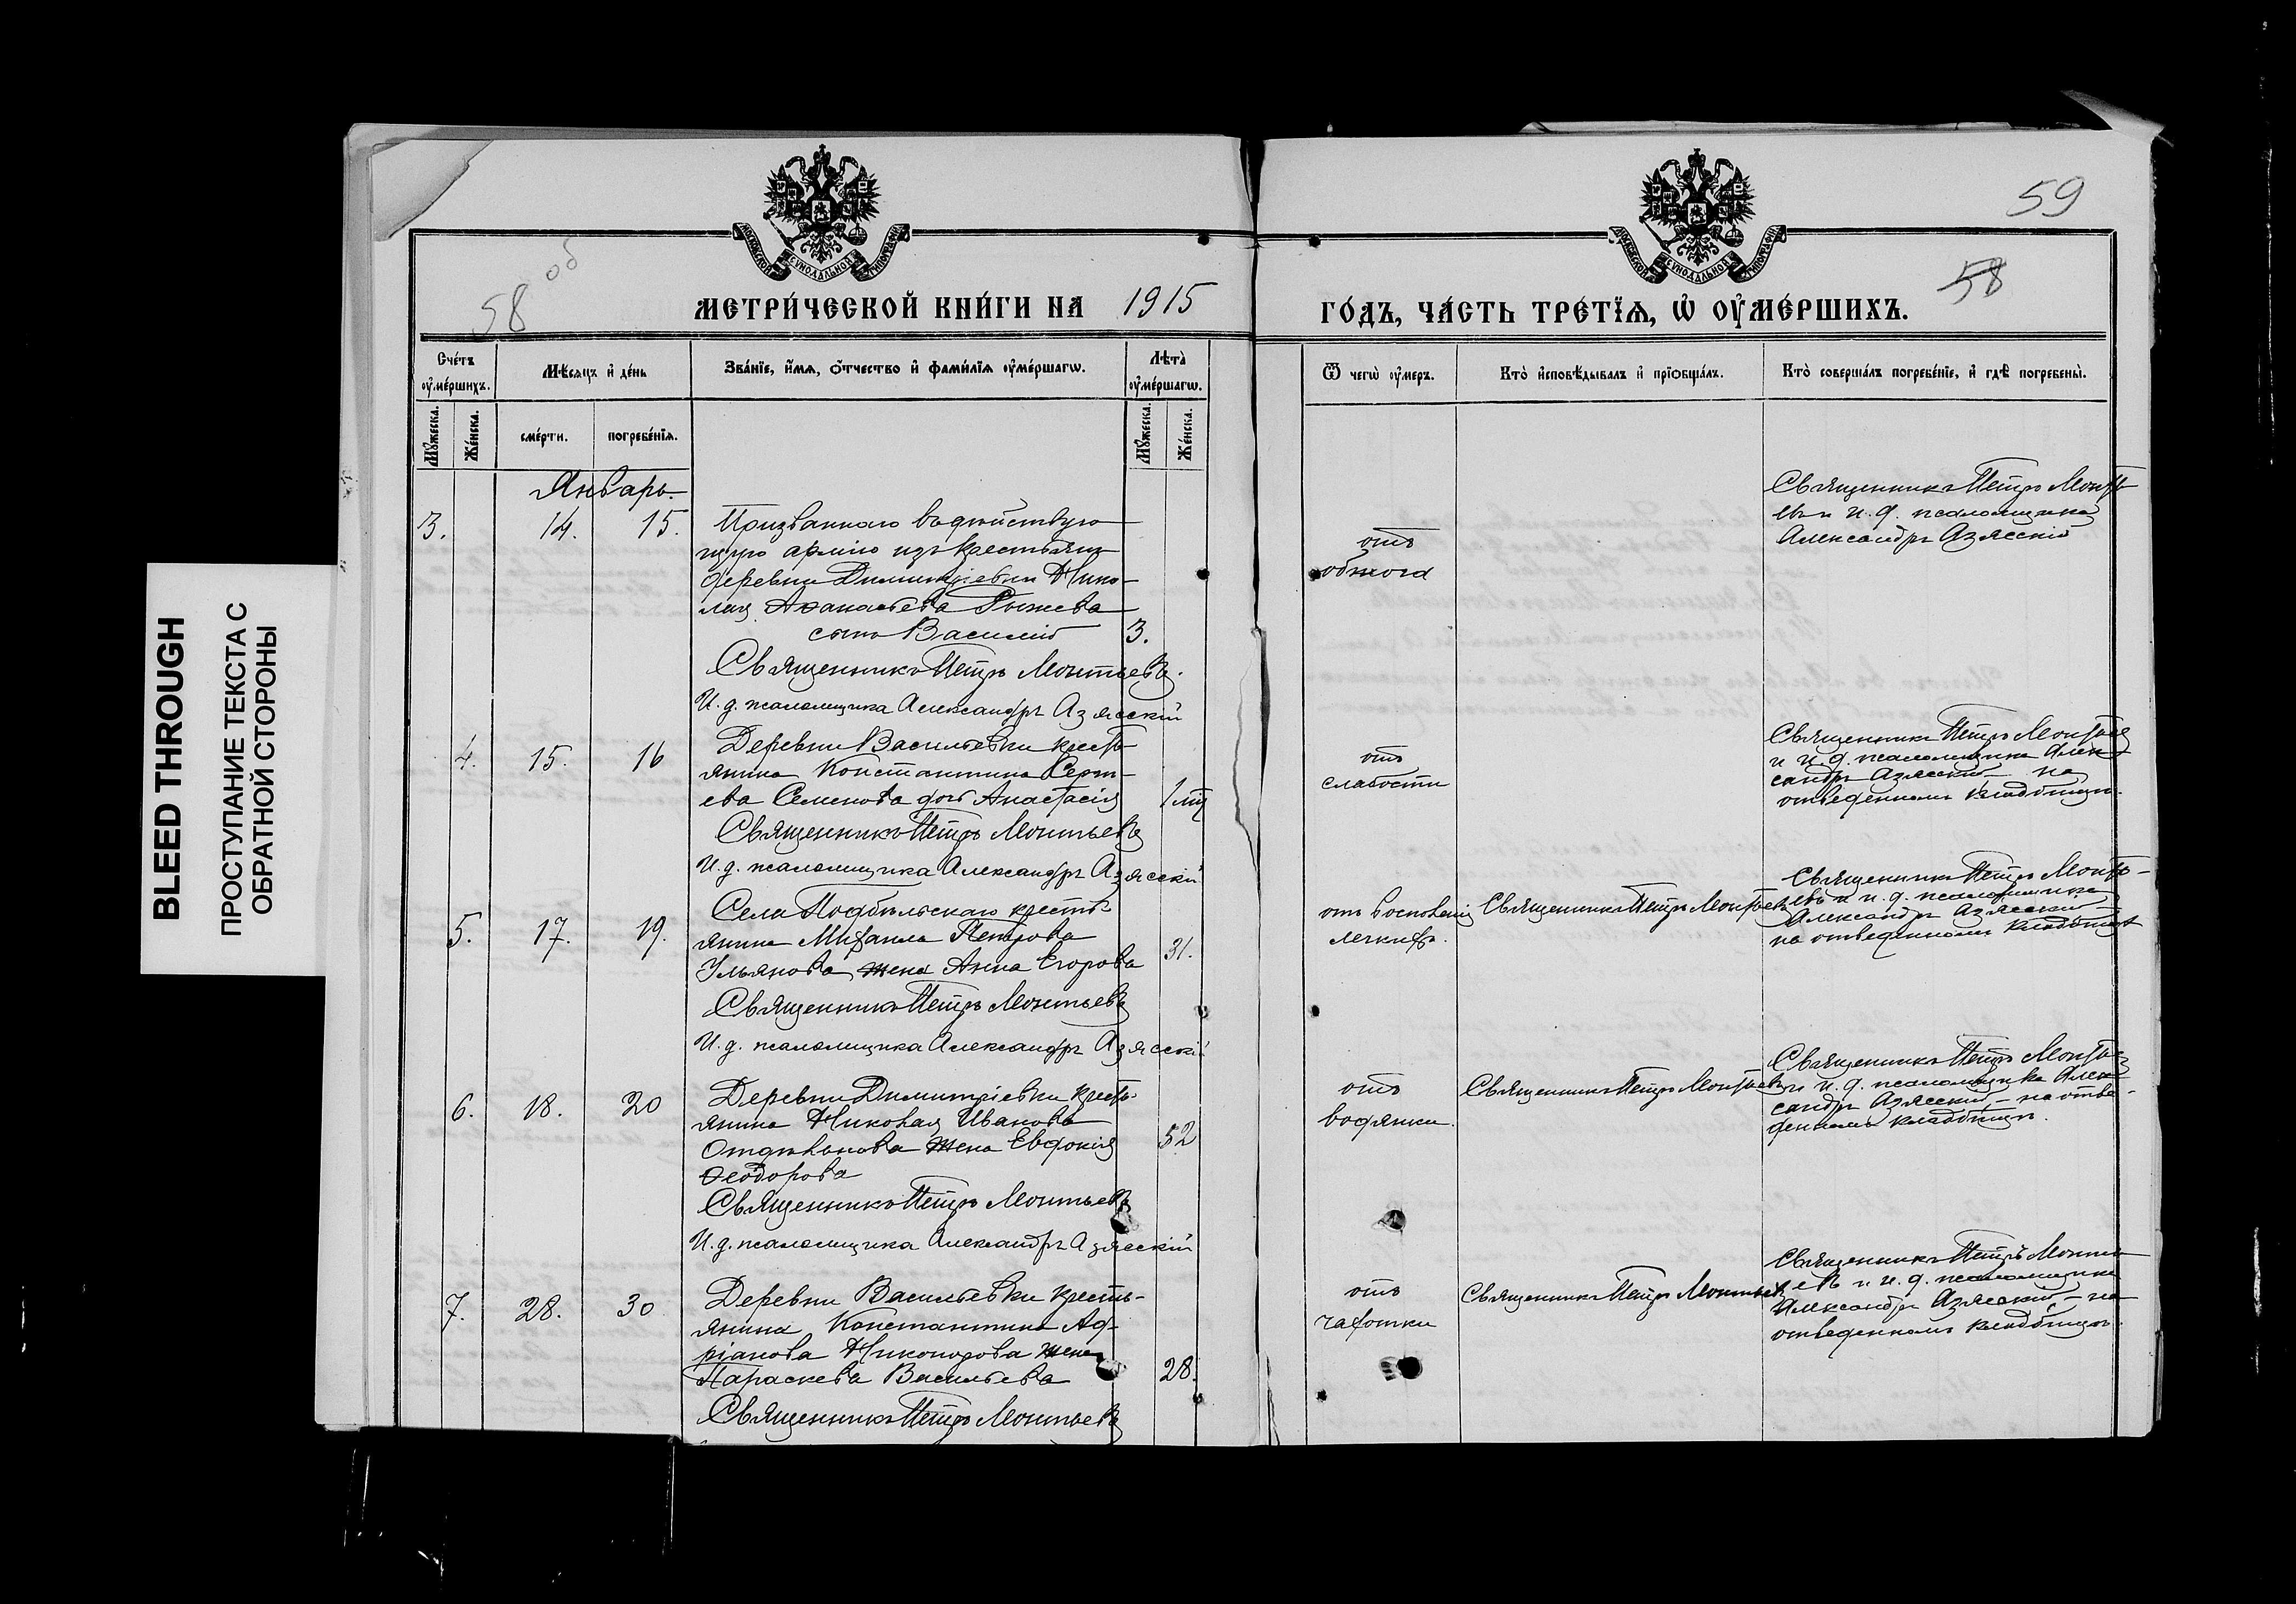 BLEED THROUGH
ПРОСТУПАНИЕ ТЕКСТА С
ОБРАТНОЙ СТОРОНЫ
58 об
59
58
МЕТРИ́ЧЕСКОЙ КНИ́ГИ НА 1915 ГО́ДЪ, ЧА́СТЬ ТРЕ́ТЇѦ, Ѡ҆ ОУ҆МЕ́РШИХЪ.
Сче́тъ оу҆ме́ршихъ.
Мꙋ́жеска.
Же́нска.
Мѣ́сѧцъ и҆ де́нь
сме́рти.
погребе́нїѧ.
Зва́нїе, и҆́мѧ, ѻ҆́тчество и҆ фами́лїѧ оу҆ме́ршагѡ.
Лѣта̀ оу҆ме́ршагѡ.
Мꙋ́жеска.
Же́нска.
Ѿ чегѡ̀ оу҆́меръ.
Кто̀ и҆сповѣ́дывалъ и҆ прїѻбща́лъ.
Кто̀ соверша́лъ погребе́нїе, и҆ гдѣ̀ погребены̀.
Январь.
3. 14. 15.
Призваннаго въ действую
щую армію изъ крестьянъ
деревни Димитріевки Нико-
лая Аѳанасьева Рыжева
сынъ Василій 3.
Священникъ Петръ Монтьевъ.
И. д. псаломщика Александръ Азясскій
отъ
обжога
Священникъ Петръ Монть
евъ и и. д. псаломщика
Александръ Азясскій
4. 15. 16
Деревни Васильевки кресть-
янина Константина Серге-
ева Семенова дочь Анастасія
Священникъ Петръ Монтьевъ
И. д. псаломщика Александръ Азясскій
отъ
слабости
Священникъ Петръ Монтьев
и и. д. псаломщика Алек
сандръ Азясскій – на
отведенномъ кладбищѣ.
5. 17. 19.
Села Подбѣльскаго кресть-
янина Михаила Петрова
Ульянова жена Анна Егорова 31.
Священникъ Петръ Монтьевъ
И. д. псаломщика Александръ Азясскій
отъ воспаленія
легкихъ.
Священникъ Петръ Монтьевъ
Священникъ Петръ Монть-
евъ и и. д. псаломщика
Александръ Азясскій
на отведенномъ кладбищѣ
6. 18. 20
Деревни Димитріевки кресть-
янина Николая Иванова
жена Евдокія 52
Ѳеодорова
Священникъ Петръ Монтьевъ
И. д. псаломщика Александръ Азясскій
отъ
водянки.
Священникъ Петръ Монтьевъ
Священникъ Петръ Монтьев
и и. д. псаломщика Алек
сандръ Азясскій – на отве-
денномъ кладбищѣ.
7. 28. 30
Деревни Васильевки кресть-
янина Константина Ад-
ріанова Никонорова жена
Параскева Васильева 28.
Священникъ Петръ Монтьевъ
отъ
чахотки
Священникъ Петръ Монтьевъ
Священникъ Петръ Монть
евъ и и. д. псаломщика
Александръ Азясскій – на
отведенномъ кладбищѣ.